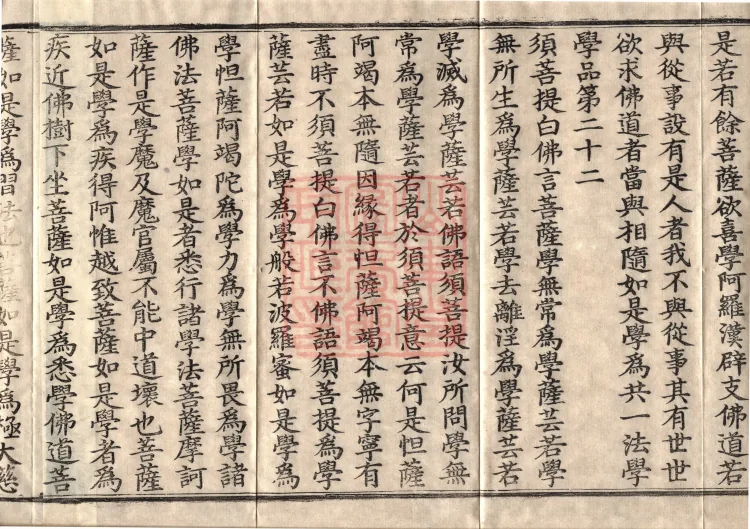 是若有餘菩薩欲喜學阿羅漢辟支佛道若
與從事設有是人者我不與從事其有世世
欲求佛道者當與相隨如是學爲共一法學
學品第二十二
須菩提白佛言菩薩學無常爲學薩芸若學
無所生爲學薩芸若學去離淫爲學薩芸若
學滅爲學薩芸若佛語須菩提汝所問學無
常爲學薩芸若者於須菩提意云何是怛薩
阿竭本無隨因緣得怛薩阿竭本無字寧有
盡時不須菩提白佛言不佛語須菩提爲學
薩芸若如是學爲學般若波羅蜜如是學爲
學怛薩阿竭陀爲學力爲學無所畏爲學諸
佛法菩薩學如是者悉行諸學法菩薩摩訶
薩作是學魔及魔官屬不能中道壞也菩薩
如是學爲疾得阿惟越致菩薩如是學者爲
疾近佛樹下坐菩薩如是學爲悉學佛道菩
薩如是學爲習法也菩薩如是學爲極大慈